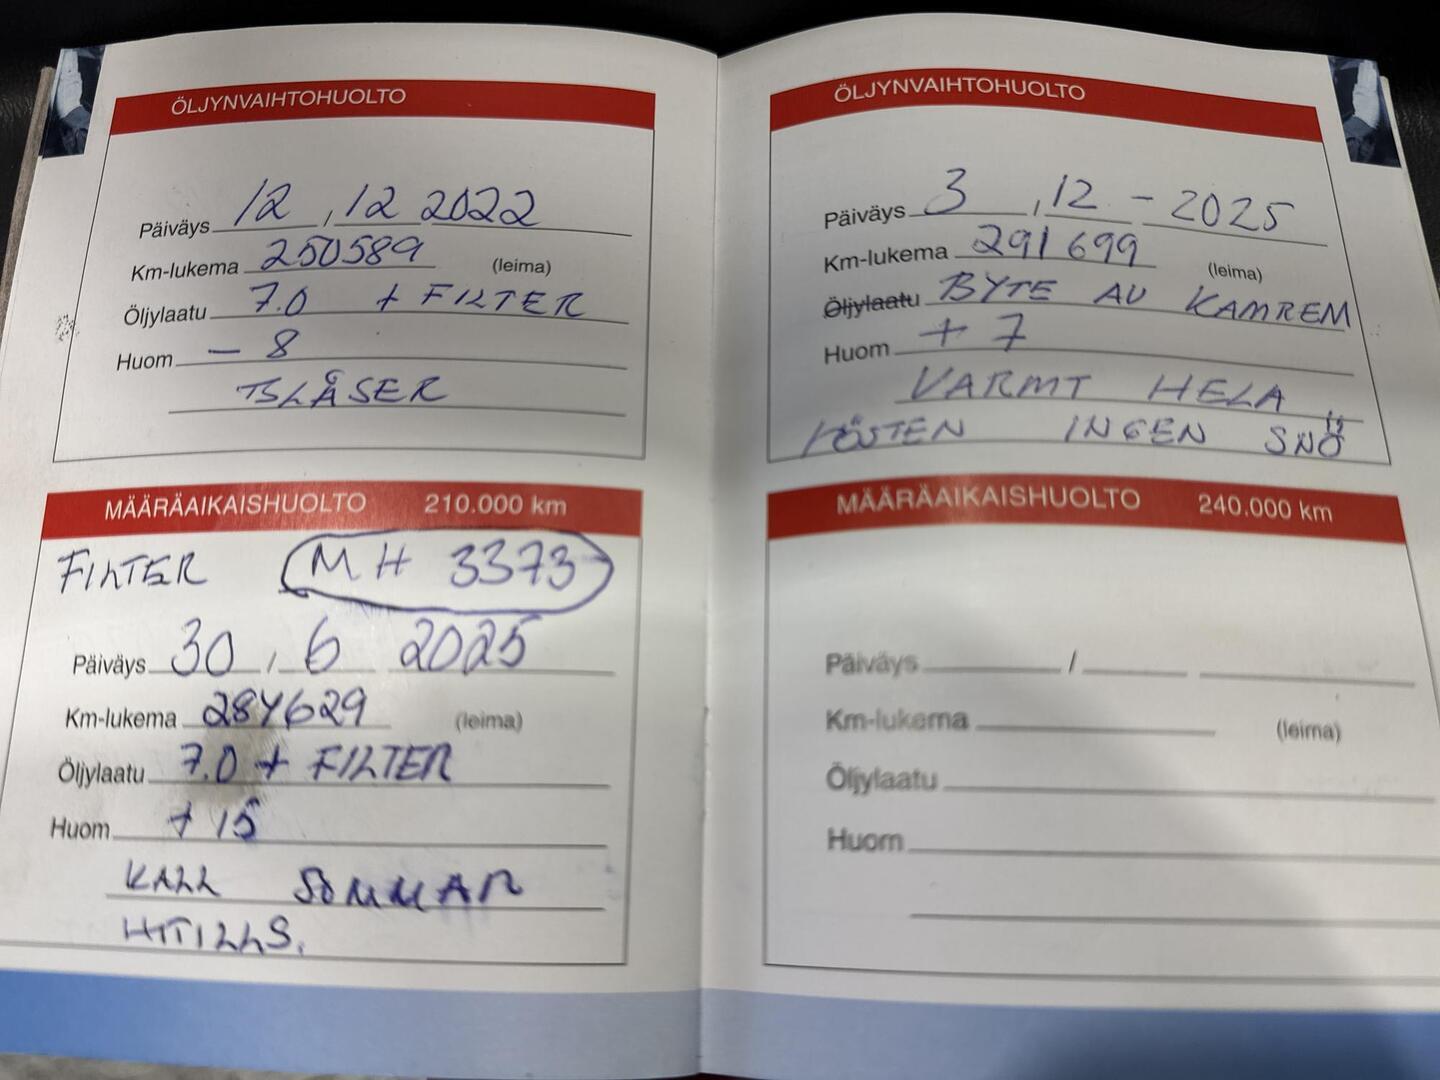 ÖLJYNVAIHTOHUOLTO
Päiväys 12 , 12 2022
Km-lukema 250589 (leima)
Öljylaatu 7.0 + FILTER
Huom - 8
BLÅSER
MÄÄRÄAIKAISHUOLTO 210.000 km
FILTER MH 3373
Päiväys 30 / 6 2025
Km-lukema 284629 (leima)
Öljylaatu 7.0 + FILTER
Huom + 15
KALL SOMMAR
HITILLS.
ÖLJYNVAIHTOHUOLTO
Päiväys 3 , 12 - 2025
Km-lukema 291699 (leima)
Öljylaatu BYTE AV KAMREM
Huom + 7
VARMT HELA
HÖSTEN INGEN SNÖ
MÄÄRÄAIKAISHUOLTO 240.000 km
Päiväys /
Km-lukema (leima)
Öljylaatu
Huom